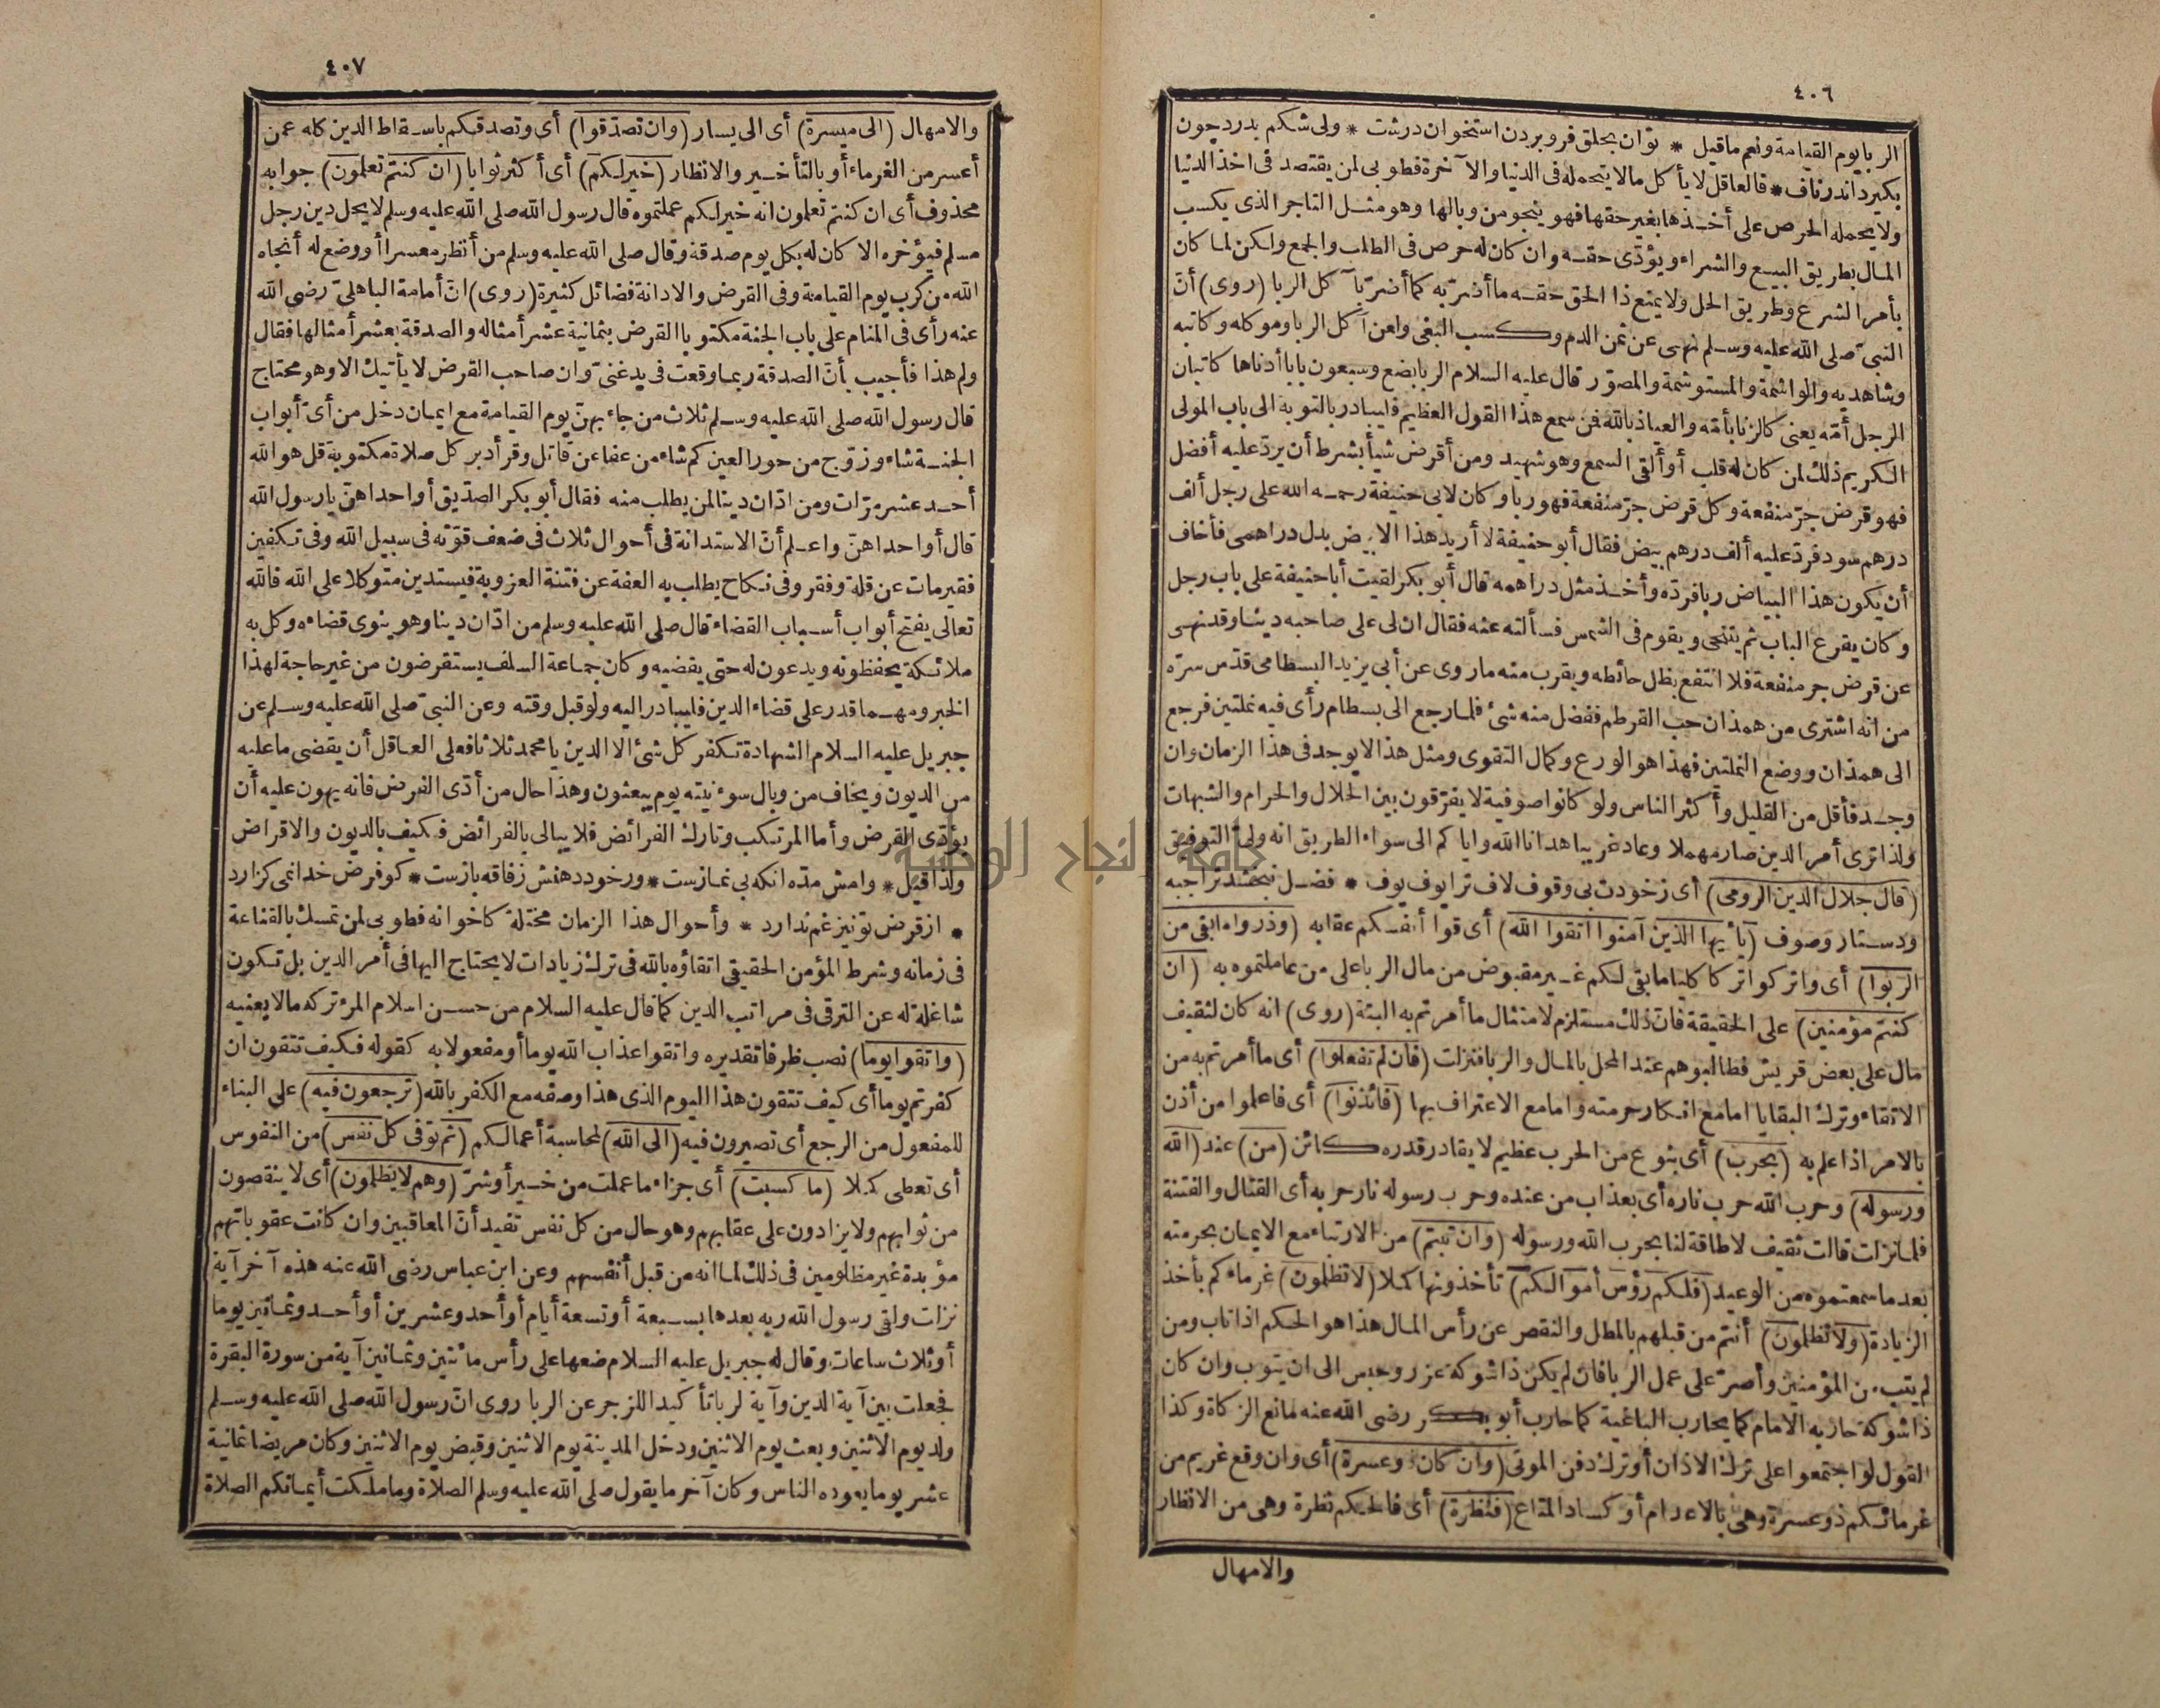 ٤٠٦
الربا يوم القيامة ونعم ما قيل * توان بحلق فروبردن استخوان درشت * ولى شكم بدرد چون
بكيرد اندر ناف * فالعاقل لا يأكل مالا يتحمله فى الدنيا والآخرة فطوبى لمن يقتصد فى اخذ الدنيا
ولا يحمله الحرص على أخذها بغير حقها فهو ينجو من وبالها وهو مثل التاجر الذى يكسب
المال بطريق البيع والشراء ويؤدّى حقه وان كان له حرص فى الطلب والجمع ولكن لما كان
بأمر الشرع وطريق الحل ولا يمنع ذا الحق حقه ما أضرّ به كما أضرّ بآكل الربا (روى) أنّ
النبىّ صلى الله عليه وسلم نهى عن ثمن الدم وكسب البغى ولعن آكل الربا وموكله وكاتبه
وشاهديه والواشمة والمستوشمة والمصوّر قال عليه السلام الربا بضع وسبعون بابا أدناها كاتيان
الرجل أمّه يعنى كالزنا بأمّه والعياذ بالله فمن سمع هذا القول العظيم فليبادر بالتوبة الى باب المولى
الكريم ذلك لمن كان له قلب أو ألقى السمع وهو شهيد ومن أقرض شيأ بشرط أن يردّ عليه أفضل
فهو قرض جرّ منفعة وكل قرض جرّ منفعة فهو ربا وكان لابى حنيفة رحمه الله على رجل ألف
درهم سود فردّ عليه ألف درهم بيض فقال أبو حنيفة لا أريد هذا الابيض بدل دراهمى فأخاف
أن يكون هذا البياض ربا فردّه وأخذ مثل دراهمه قال أبو بكر لقيت أبا حنيفة على باب رجل
وكان يقرع الباب ثم يتنحى ويقوم فى الشمس فسألته عنه فقال ان لى على صاحبه دينا وقد نهى
عن قرض جر منفعة فلا انتفع بظل حائطه ويقرب منه ما روى عن أبى يزيد البسطامى قدّس سرّه
من انه اشترى من همذان حب القرطم ففضل منه شئ فلما رجع الى بسطام رأى فيه نملتين فرجع
الى همذان ووضع النملتين فهذا هو الورع وكمال التقوى ومثل هذا لا يوجد فى هذا الزمان وان
وجد فأقل من القليل وأكثر الناس ولو كانوا صوفية لا يفرّقون بين الحلال والحرام والشبهات
ولذا ترى أمر الدين صار مهملا وعاد غريبا هدانا الله واياكم الى سواء الطريق انه ولىّ التوفيق
(قال جلال الدين الرومى) أى زخودت بى وقوف لاف ترا يوف يوف * فضل نبخشد ترا جبه
ودستار وصوف (يا أيها الذين آمنوا اتقوا الله) أى قوا أنفسكم عقابه (وذروا ما بقى من
الربوا) أى واتركوا تركا كليا ما بقى لكم غير مقبوض من مال الربا على من عاملتموه به (ان
كنتم مؤمنين) على الحقيقة فانّ ذلك مستلزم لامتثال ما أمرتم به البتة (روى) انه كان لثقيف
مال على بعض قريش فطالبوهم عند المحل بالمال والربا فنزلت (فان لم تفعلوا) أى ما أمرتم به من
الاتقاء وترك البقايا اما مع انكار حرمته واما مع الاعتراف بها (فائذنوا) أى فاعلموا من أذن
بالامر اذا علم به (بحرب) أى بنوع من الحرب عظيم لا يقادر قدره كائن (من) عند (الله
ورسوله) وحرب الله حرب ناره أى بعذاب من عنده وحرب رسوله نار حربه أى القتال والفتنة
فلما نزلت قالت ثقيف لا طاقة لنا بحرب الله ورسوله (وان تبتم) من الارتباء مع الايمان بحرمته
بعد ما سمعتموه من الوعيد (فلكم رؤس أموالكم) تأخذونها كملا (لا تظلمون) غرماءكم بأخذ
الزيادة (ولا تظلمون) أنتم من قبلهم بالمطل والنقص عن رأس المال هذا هو الحكم اذا تاب ومن
لم يتب من المؤمنين وأصرّ على عمل الربا فان لم يكن ذا شوكة عزر وحبس الى ان يتوب وان كان
ذا شوكة حاربه الامام كما يحارب الباغية كما حارب أبو بكر رضى الله عنه مانع الزكاة وكذا
القول لو اجتمعوا على ترك الاذان أو ترك دفن الموتى (وان كان ذو عسرة) أى وان وقع غريم من
غرمائكم ذو عسرة وهى بالاعدام أو كساد المتاع (فنظرة) أى فالحكم نظرة وهى من الانظار
والامهال
٤٠٧
والامهال (الى ميسرة) أى الى يسار (وان تصدّقوا) أى وتصدقكم باسقاط الدين كله عمن
أعسر من الغرماء أو بالتأخير والانظار (خير لكم) أى أكثر ثوابا (ان كنتم تعلمون) جوابه
محذوف أى ان كنتم تعلمون انه خير لكم عملتموه قال رسول الله صلى الله عليه وسلم لا يحل دين رجل
مسلم فيؤخره الا كان له بكل يوم صدقة وقال صلى الله عليه وسلم من أنظر معسرا أو وضع له أنجاه
الله من كرب يوم القيامة وفى القرض والادانة فضائل كثيرة (روى) انّ أمامة الباهلىّ رضى الله
عنه رأى فى المنام على باب الجنة مكتوبا القرض بثمانية عشر أمثاله والصدقة بعشر أمثالها فقال
ولم هذا فأجيب بأنّ الصدقة ربما وقعت فى يد غنىّ وان صاحب القرض لا يأتيك الا وهو محتاج
قال رسول الله صلى الله عليه وسلم ثلاث من جاء بهنّ يوم القيامة مع ايمان دخل من أىّ أبواب
الجنة شاء وزوّج من حور العين كم شاء من عفا عن قاتل وقرأ دبر كل صلاة مكتوبة قل هو الله
أحد عشر مرّات ومن ادّان دينا لمن يطلب منه فقال أبو بكر الصدّيق أو احداهنّ يا رسول الله
قال أو احداهنّ واعلم أنّ الاستدانة فى أحوال ثلاث فى ضعف قوّته فى سبيل الله وفى تكفين
فقير مات عن قلة وفقر وفى نكاح يطلب به العفة عن فتنة العزوبة فيستدين متوكلا على الله فالله
تعالى يفتح أبواب أسباب القضاء قال صلى الله عليه وسلم من ادّان دينا وهو ينوى قضاءه وكل به
ملائكة يحفظونه ويدعون له حتى يقضيه وكان جماعة السلف يستقرضون من غير حاجة لهذا
الخبر ومهما قدر على قضاء الدين فليبادر اليه ولو قبل وقته وعن النبىّ صلى الله عليه وسلم عن
جبريل عليه السلام الشهادة تكفر كل شئ الا الدين يا محمد ثلاثا فعلى العاقل أن يقضى ما عليه
من الديون ويخاف من وبال سوء نيته يوم يبعثون وهذا حال من أدّى الفرض فانه يهون عليه أن
يؤدّى القرض وأما المرتكب وتارك الفرائض فلا يبالى بالفرائض فكيف بالديون والاقراض
ولذا قيل * وامش مده انكه بى نمازست * ورخود دهنش زفاقه بازست * كو فرض خدا نمى كزارد
* از قرض تو نيز غم ندارد * وأحوال هذا الزمان مختلة كاخوانه فطوبى لمن تمسك بالقناعة
فى زمانه وشرط المؤمن الحقيقى اتقاؤه بالله فى ترك زيادات لا يحتاج اليها فى أمر الدين بل تكون
شاغلة له عن الترقى فى مراتب الدين كما قال عليه السلام من حسن اسلام المرء تركه مالا يعنيه
(واتقوا يوما) نصب ظرفا تقديره واتقوا عذاب الله يوما أو مفعولا به كقوله فكيف تتقون ان
كفرتم يوما أى كيف تتقون هذا اليوم الذى هذا وصفه مع الكفر بالله (ترجعون فيه) على البناء
للمفعول من الرجع أى تصيرون فيه (الى الله) لمحاسبة أعمالكم (ثم توفى كل نفس) من النفوس
أى تعطى كملا (ما كسبت) أى جزاء ما عملت من خير أو شرّ (وهم لا يظلمون) أى لا ينقصون
من ثوابهم ولا يزادون على عقابهم وهو حال من كل نفس تفيد أنّ المعاقبين وان كانت عقوباتهم
مؤبدة غير مظلومين فى ذلك لما انه من قبل أنفسهم وعن ابن عباس رضى الله عنه هذه آخر آية
نزلت ولقى رسول الله ربه بعدها بسبعة أو تسعة أيام أو أحد وعشرين أو أحد وثمانين يوما
أو ثلاث ساعات وقال له جبريل عليه السلام ضعها على رأس مائتين وثمانين آية من سورة البقرة
فجعلت بين آية الدين وآية الربا تأكيدا للزجر عن الربا روى انّ رسول الله صلى الله عليه وسلم
ولد يوم الاثنين وبعث يوم الاثنين ودخل المدينة يوم الاثنين وقبض يوم الاثنين وكان مريضا ثمانية
عشر يوما يعوده الناس وكان آخر ما يقول صلى الله عليه وسلم الصلاة وما ملكت أيمانكم الصلاة
جامعة النجاح الوطنية